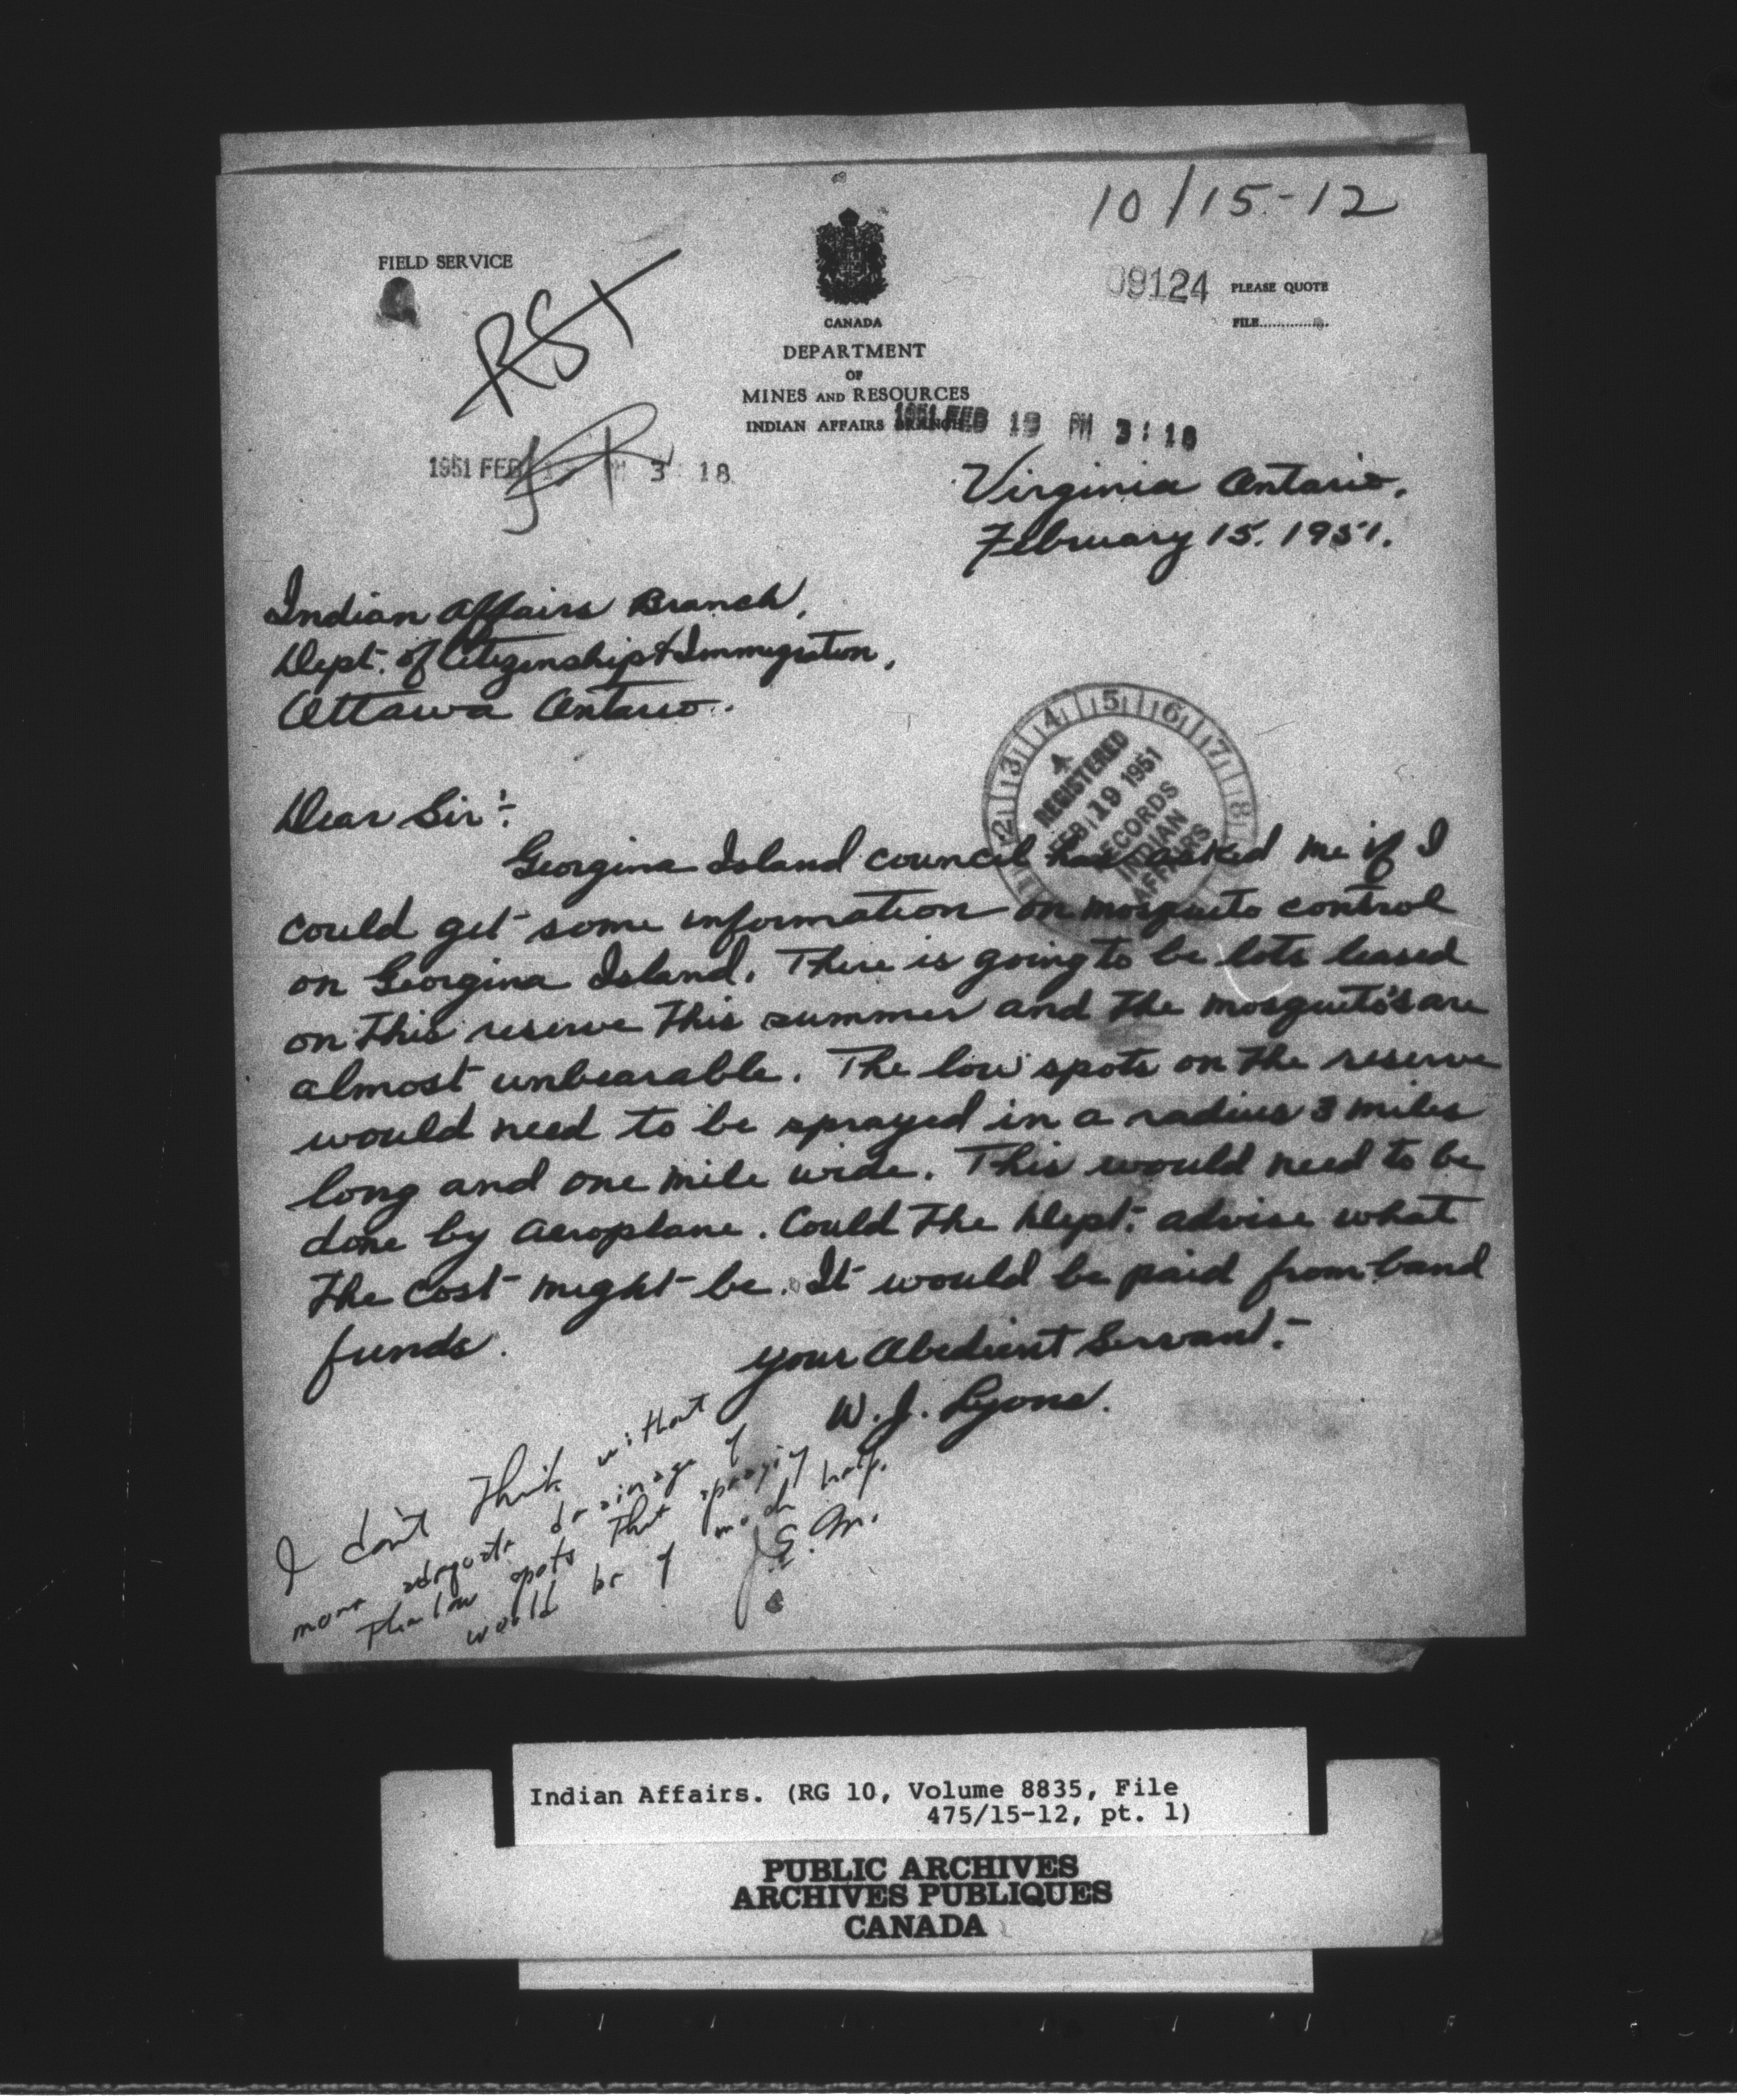 10/15-12
FIELD SERVICE
RST
09124 PLEASE QUOTE
FILE
CANADA
DEPARTMENT
OF
MINES AND RESOURCES
INDIAN AFFAIRS BRANCH
1951 FEB 19 PM 3:18
1951 FEB 3 18
Virginia Ontario.
February 15. 1951.
Indian Affairs Branch,
Dept. of Citizenship & Immigration,
Ottawa Ontario.
4 5 6 7 8
2 3
A
REGISTERED
FEB 19 1951
RECORDS
INDIAN
AFFAIRS
Dear Sir:-
Georgina Island council has asked me if I
could get some information on mosquito control
on Georgina Island. There is going to be lots leased
on this reserve this summer and the mosquito's are
almost unbearable. The low spots on the reserve
would need to be sprayed in a radius 3 miles
long and one mile wide. This would need to be
done by aeroplane. Could the Dept. advise what
the cost might be. It would be paid from band
funds.
your Obedient Servant.-
W. J. Lyons.
I don't think without
more adequate drainage of
the low spots that spraying
would be of much help.
J.E.M.
Indian Affairs. (RG 10, Volume 8835, File
475/15-12, pt. 1)
PUBLIC ARCHIVES
ARCHIVES PUBLIQUES
CANADA